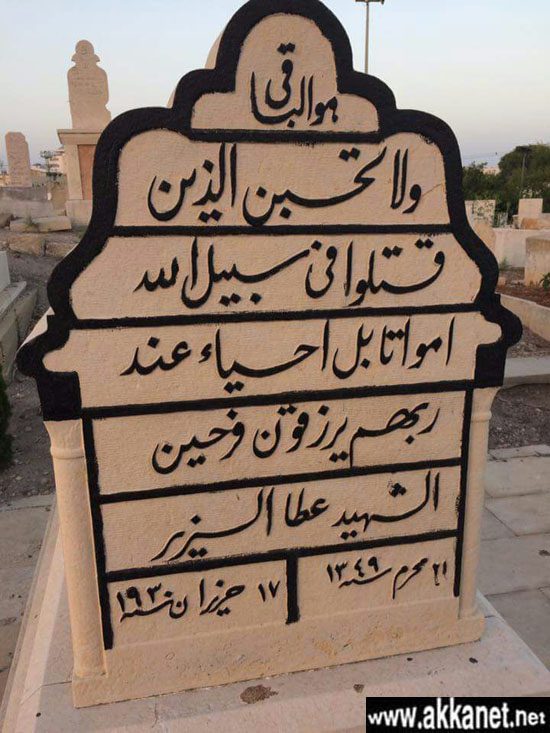 هو الباقي
ولا تحسبن الذين
قتلوا في سبيل الله
امواتا بل احياء عند
ربهم يرزقون فرحين
الشهيد عطا الزير
٢١ محرم سنة ١٣٤٩
١٧ حزيران سنة ١٩٣٠
www.akkanet.net